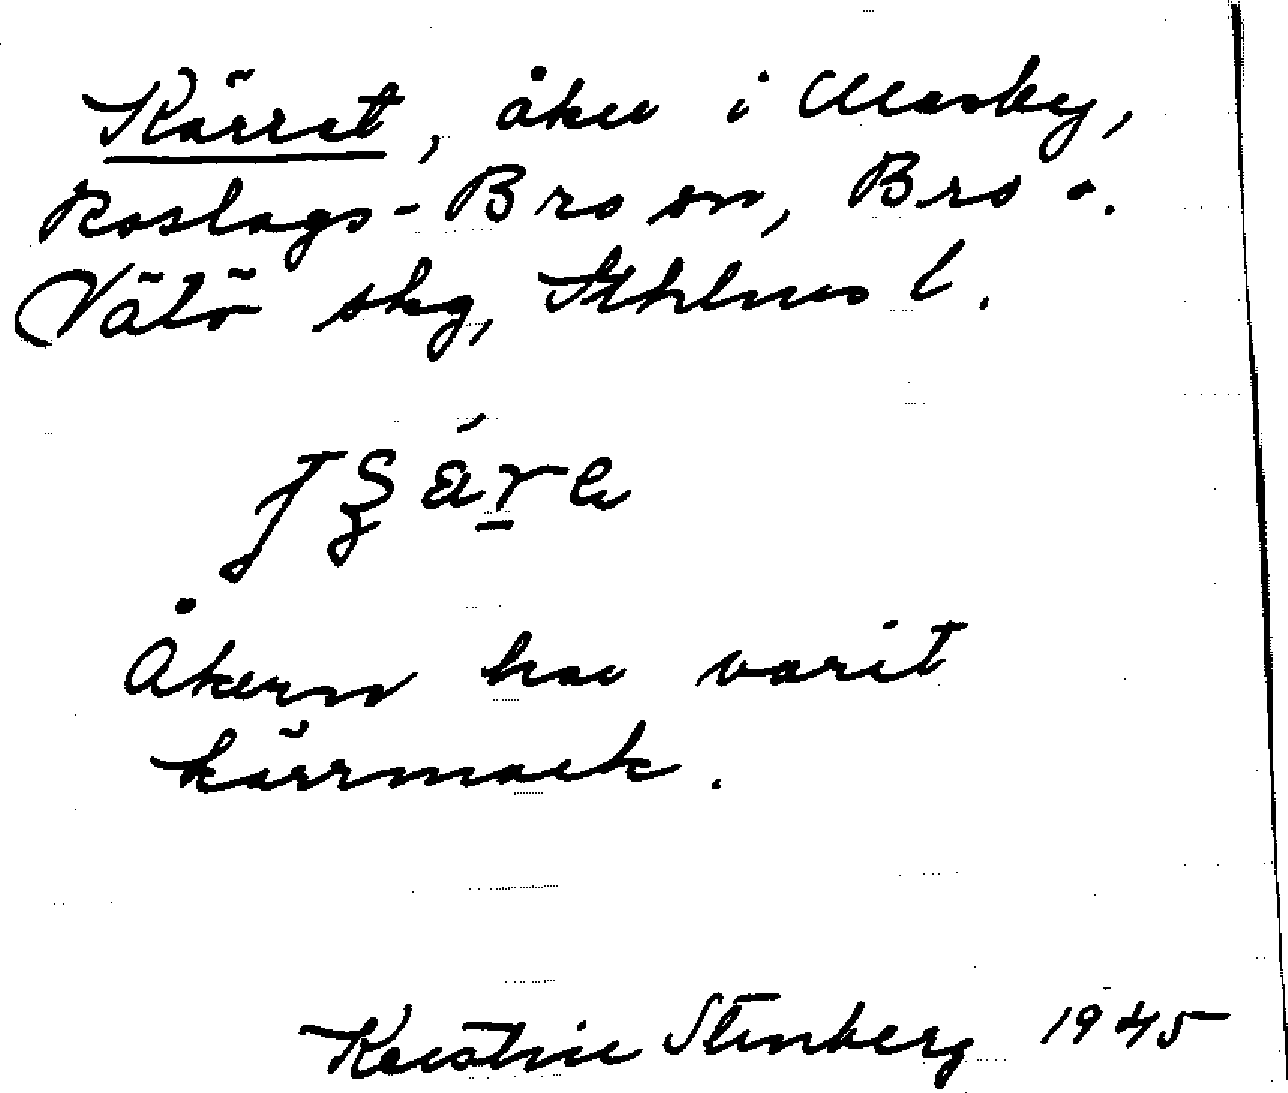 Kärret, åker i
Roslags-Bro sn, Bro o.
Vätö skg, Sthlms l.
Åkern har varit
kärrmark.
Kerstin Stenberg 1945